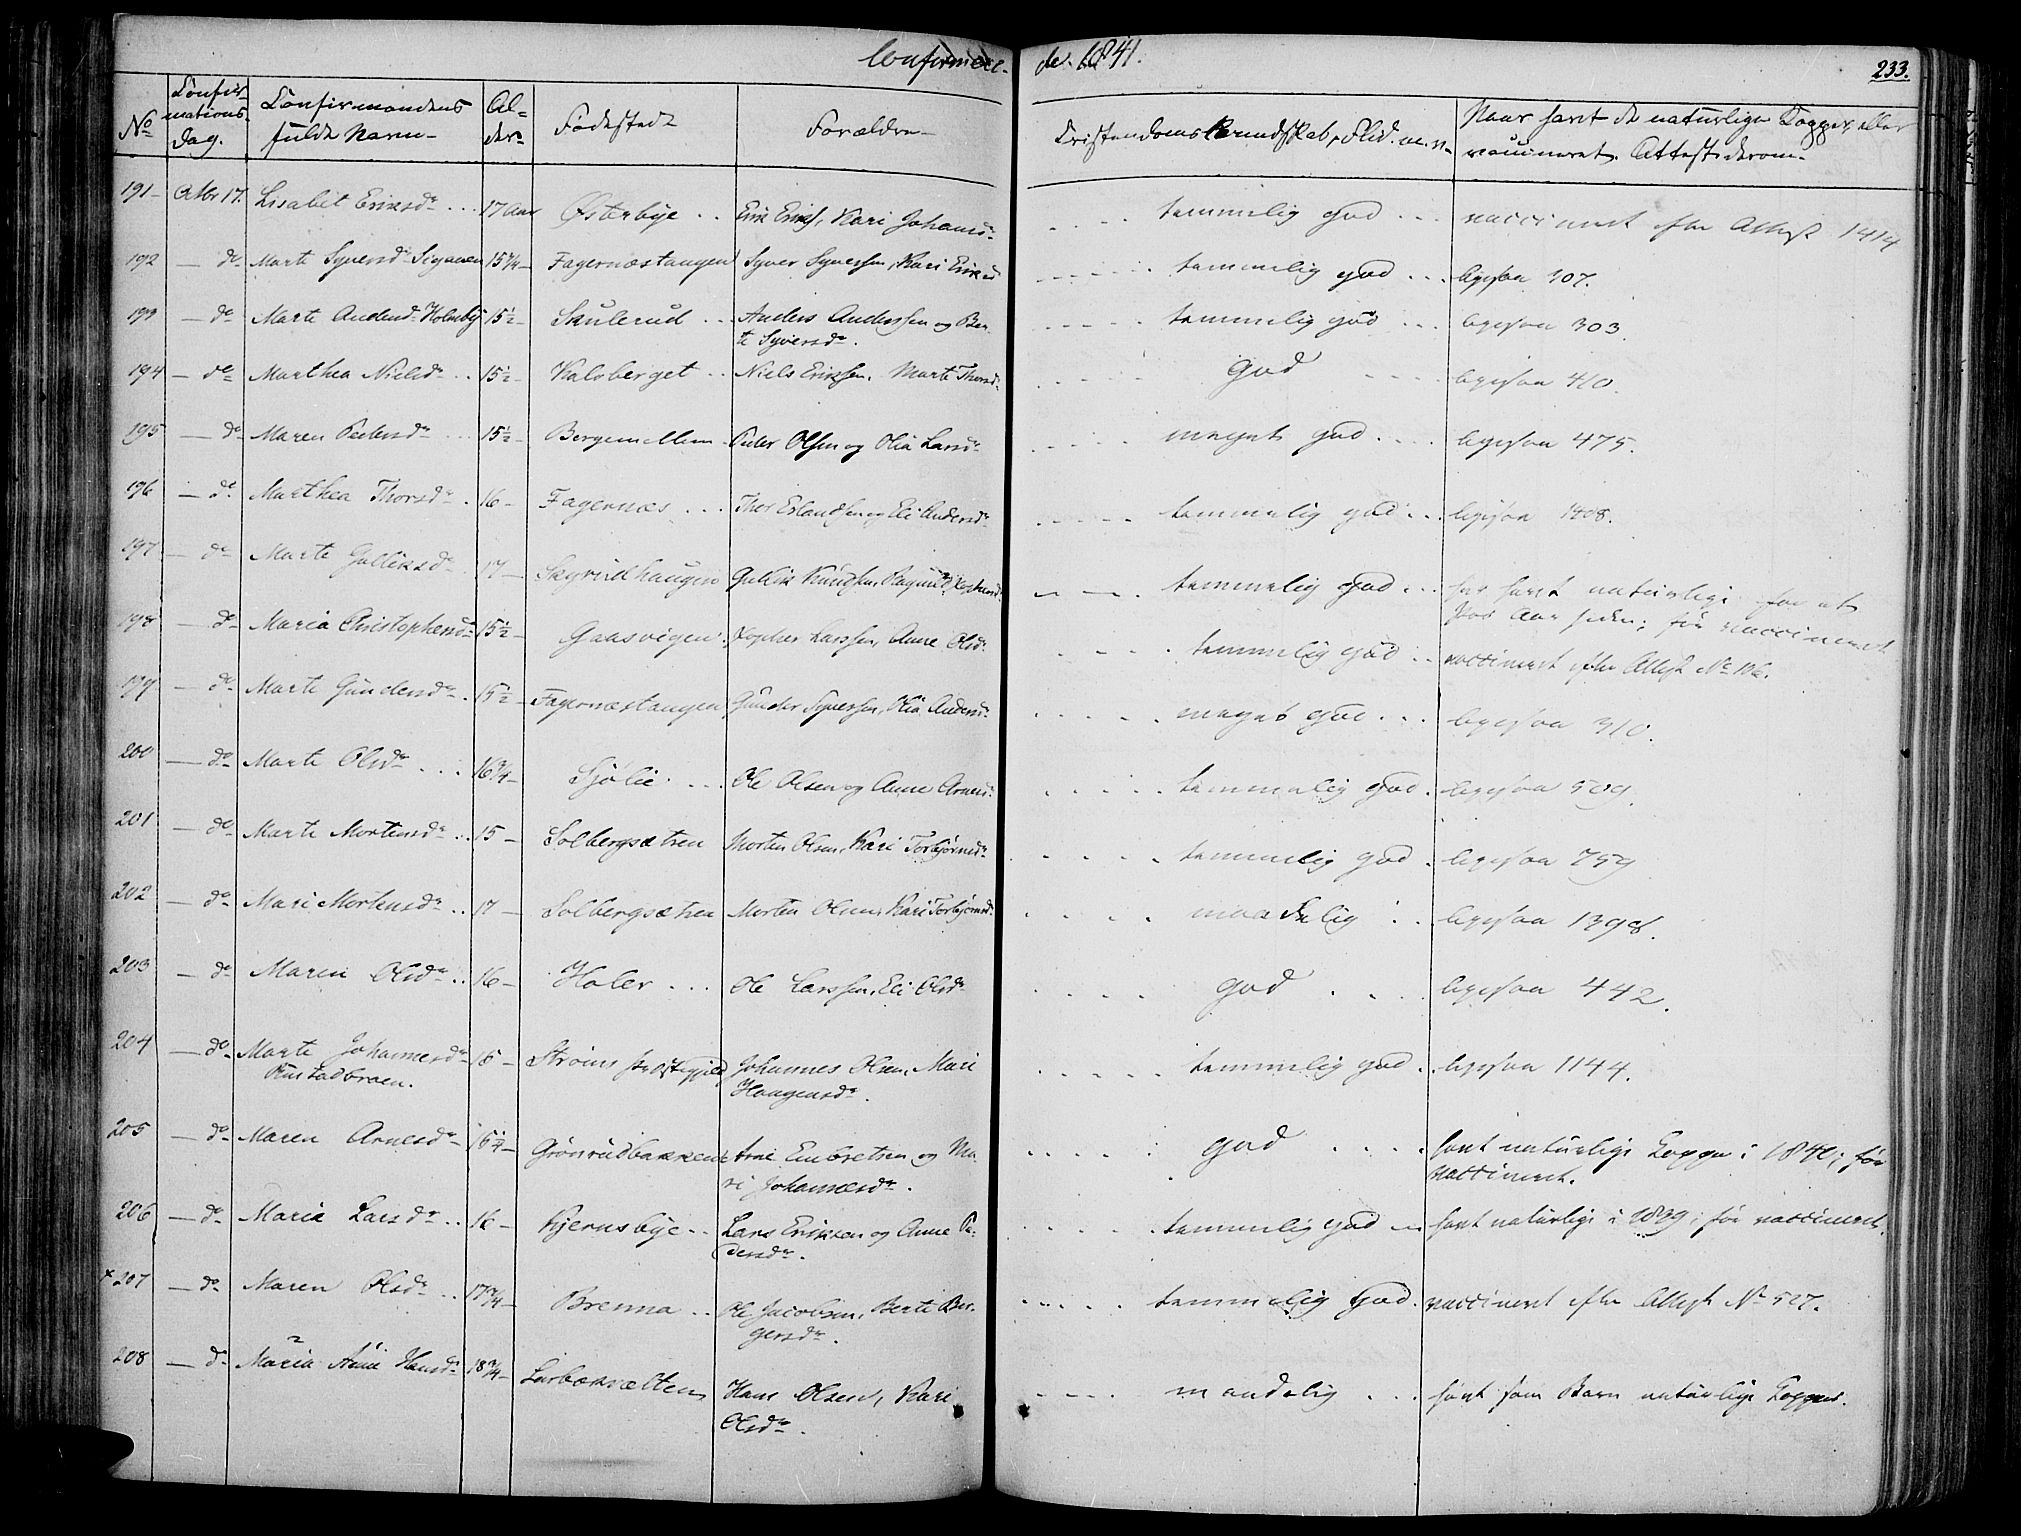 Confirmere-
de. 1841.
233.
No
Confir-
mations-
Dag.
Confirmandens
fulde Navn-
Al-
der-
Fødested
Forældre-
Cristendoms Kundskab, Flid m. m-
Naar havt de naturlige Kopper, eller
vaccineret. Attest derom-
191- Octbr 17. Lisabet Eriksdr ... 17 Aar Østerbye .. Erik Eriks, Kari Johansdr temmelig god ... vaccineret efter Attest 1414
192 - do Marte Syversdr 15 3/4- Fagernæstangen Syver Syversen, Kari Eriksd temmelig god ... ligesaa 307.
193 - do Marte Andersdr Holmbye 15 1/2- Skulerud .. Anders Andersen og Ber-
te Syversdr. temmelig god ... ligesaa 303
194 - do Marthea Nielsdr .. 15 1/2- Kalvberget .. Niels Eriksen, Marte Thorsdr God .... ligesaa 410.
195 - do Maren Pedersdr ... 15 1/2- Bergemellem- Peder Olsen og Olia Larsdr meget god .... ligesaa 475.
196 - do Marthea Thorsdr . 16- Fagernæs ... Thor Erlandsen og Eli Andersdr temmelig god ... ligesaa 1408.
197 - do Marte Gulliksdr . 17- Skyrudhaugen Gullik Knudsen, Ragnild temmelig God ... har havt naturlige for et
Par Aar siden; før vaccineret
198 - do Maria Christophersdr 15 1/2- Gaasvigen. Xstopher Larssen, Anne Olsdr temmelig god .. vaccineret efter Attest No 106.
199 - do Marte Gundersdr . 15 1/2- Fagernæstangen Gunder Syversen, Olia Andersdr meget god ... ligesaa 310.
200 - do Marte Olsdr .... 16 3/4- Sjølie .... Ole Olsen og Anne Arnesdr temmelig god . ligesaa 509.
201 - do Marte Mortensdr .. 15- Solbergsætren Morten Olsen, Kari Torbjørnsdr temmelig god . ligesaa 759
202 - do Mari Mortensdr .. 17- Solbergsætren Morten Olsen, Kari Torbjørnsdr maadelig ... ligesaa 1398.
203 - do Maren Olsdr .. 16- Holer ... Ole Larssen, Eli Olsdr god .... ligesaa 442.
204 - do Marte Johannesdr 16- Strøms Præstegjeld Johannes Olsen, Mari
Rustadbroen. Haagensdr. temmelig god . ligesaa 1144.
205 - do Maren Arnesdr- 15 1/4- Grønrudbakken Arne Embretsen og Ma-
ri Johannesdr. god .... havt naturlige Kopper i 1840; før
vaccineret.
206 - do Maria Larsdr .. 16- Kjernsbye .. Lars Eriksen og Anne Pe-
dersdr. temmelig god - havt naturlige i 1839; før vaccineret.
x 207 - do Maren Olsdr .. 17 3/4- Brenna .. Ole Jacobsen, Berte Bør-
gersdr. temmelig God . vaccineret efter Attest No 527.
208 - do Maria Anne Hansdr 18 3/4- Hans Olsen, Kari
Olsdr. maadelig ... havt som Barn naturlige Kopper.